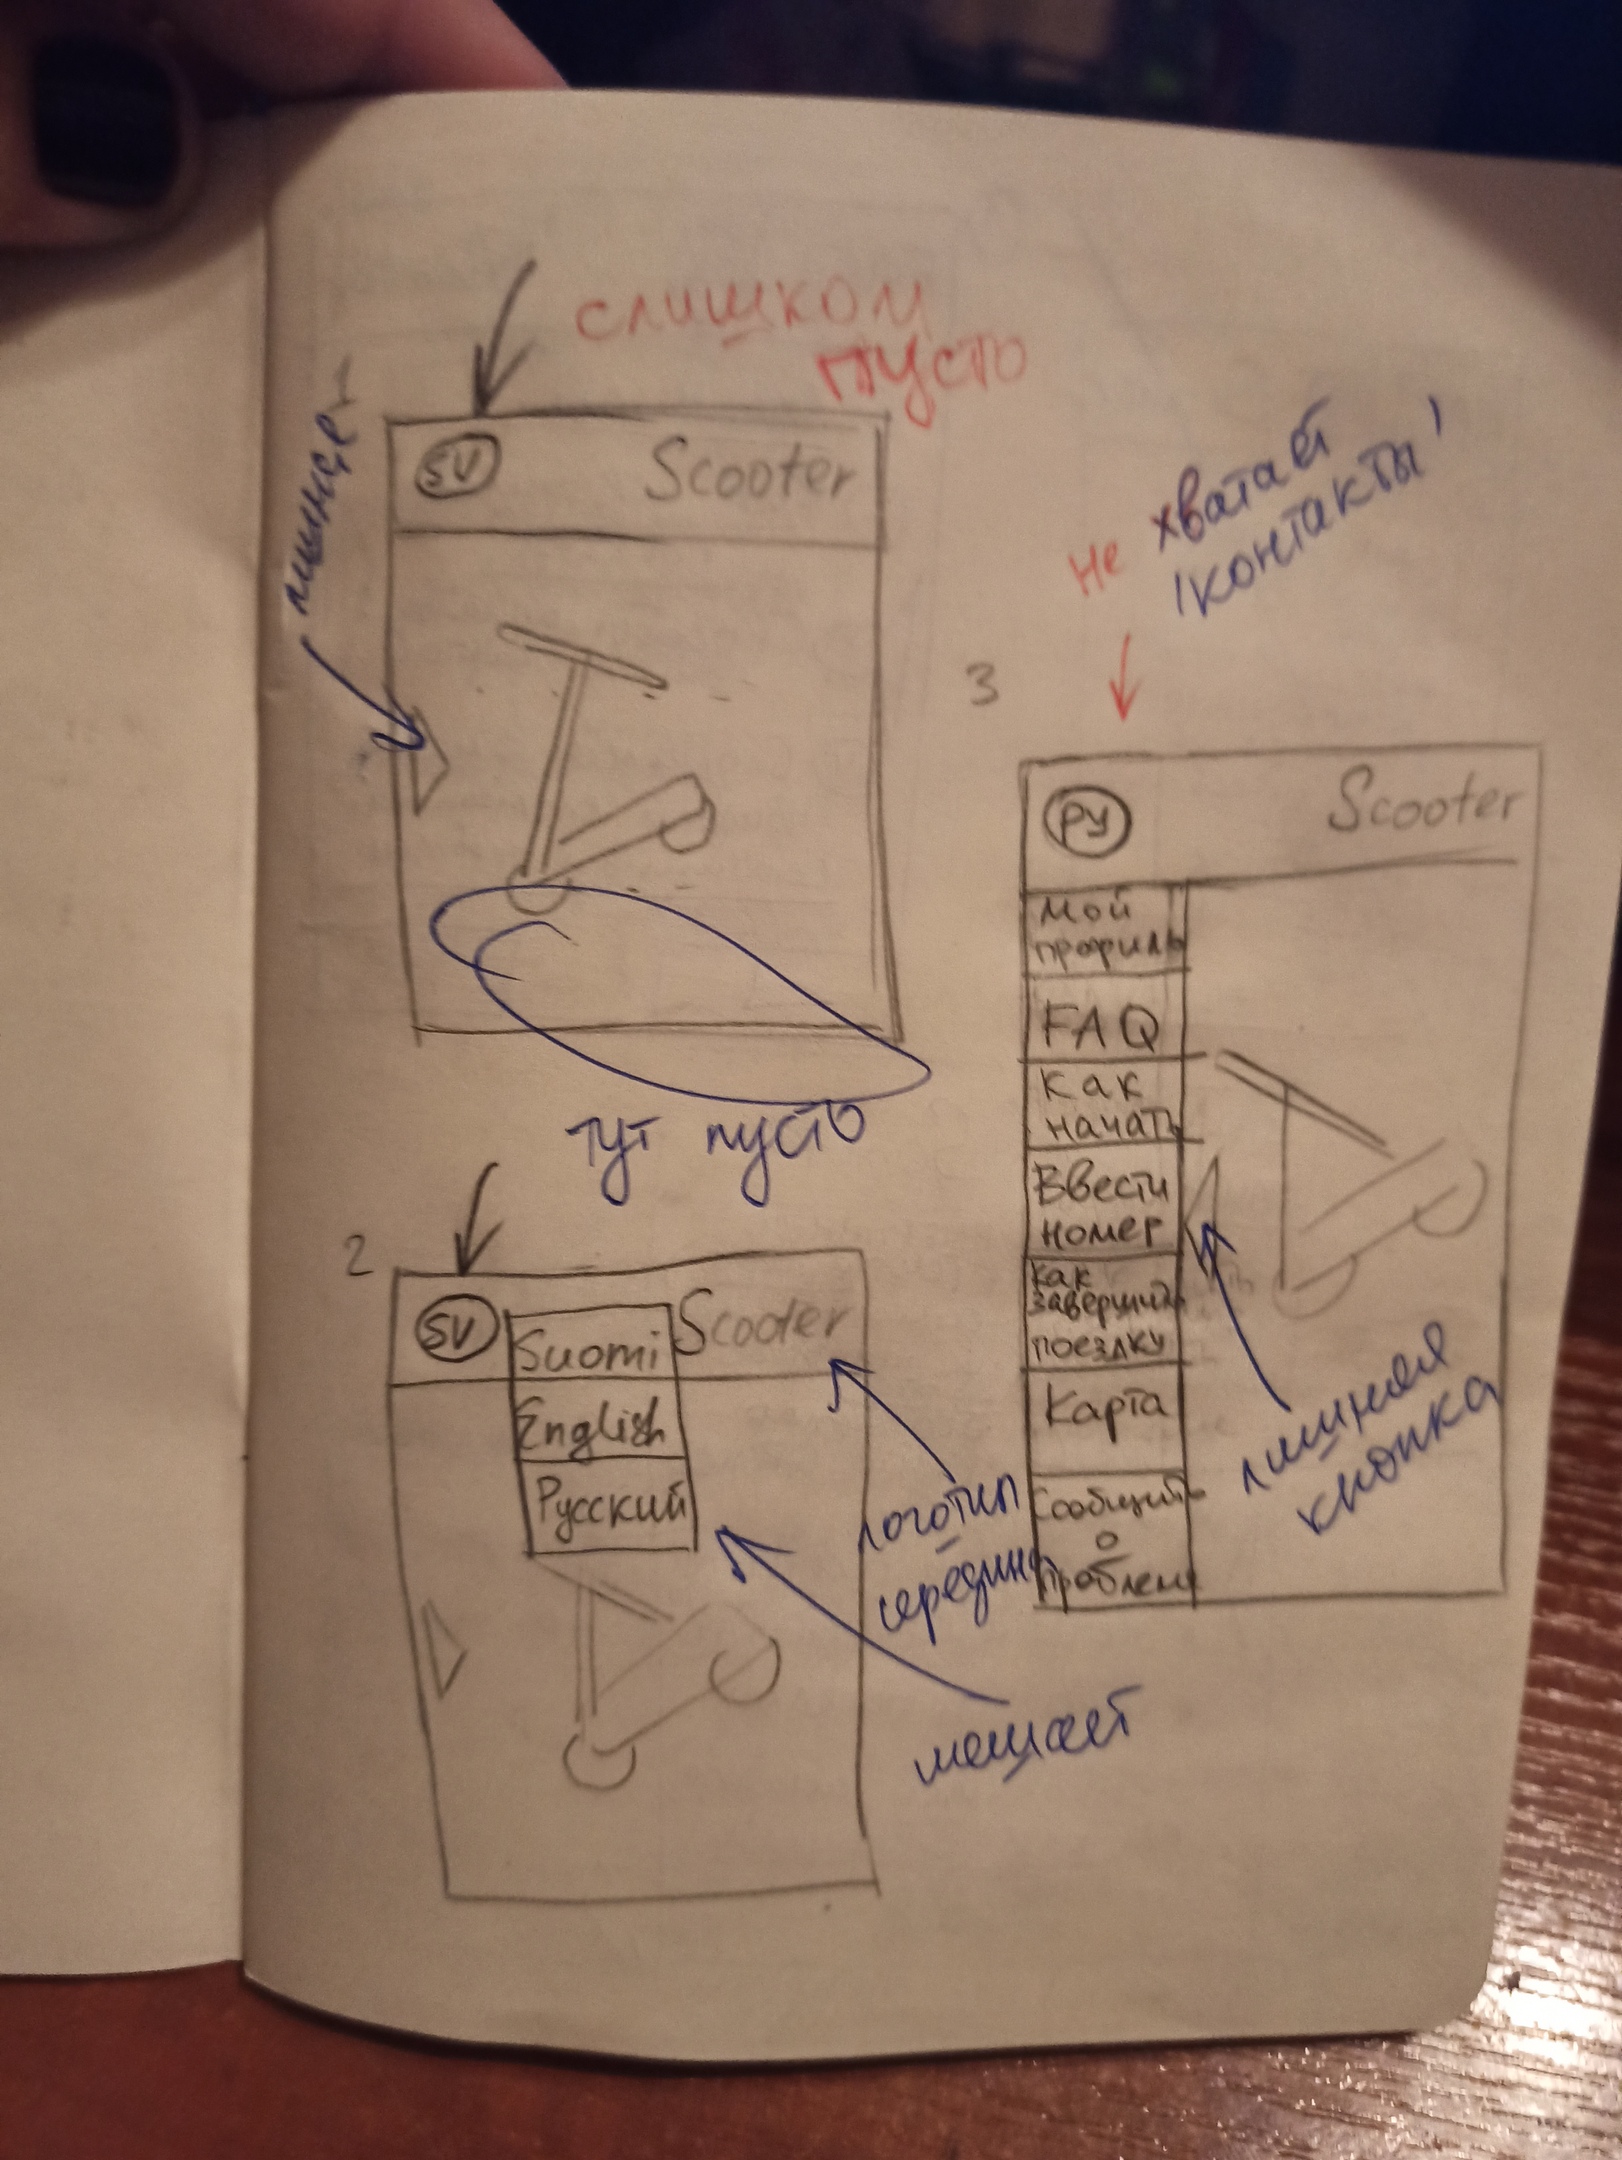 слишком
пусто
SV
Scooter
тут пусто
2
SV
Scooter
Suomi
English
Русский
логотип
мешает
не хватает
"контакты"
3
РУ
Scooter
Мой
профиль
FAQ
Как
начать
Ввести
номер
Как
завершить
поездку
Карта
Сообщить
о
проблеме
лишняя
кнопка